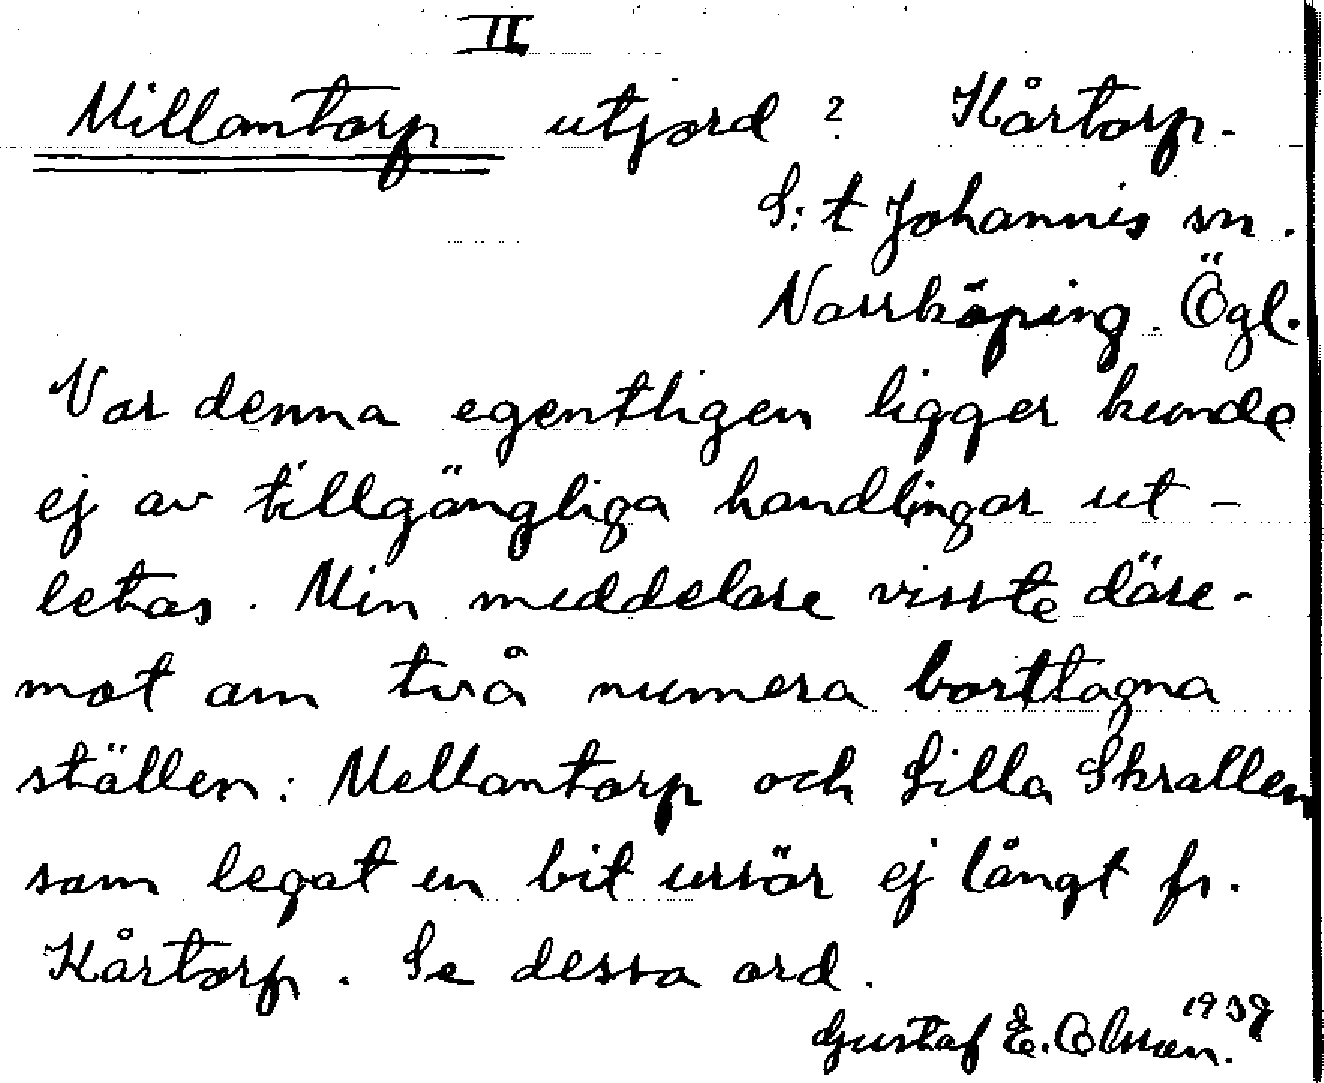 II
Millantorp utjord ? Kårtorp.
S:t Johannis sn.
Norrköping. Ögl.
Var denna egentligen ligger kunde
ej av tillgängliga handlingar ut-
letas. Min meddelare visste däre-
mot om två numera borttagna
ställen: Mellantorp och Lilla Skrallen
som legat en bit ursör ej långt fr.
Kårtorp. Se dessa ord.
Gustaf E. Olsson. 1939